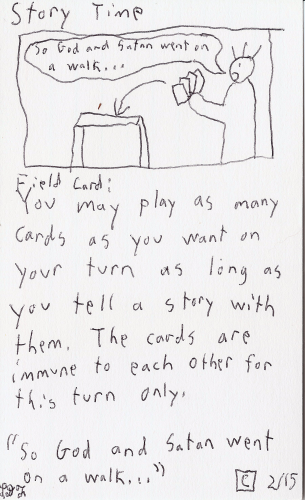 Story Time
So God and Satan went on
a walk...
Field Card:
You may play as many
cards as you want on
your turn as long as
you tell a story with
them. The cards are
immune to each other for
this turn only.
"So God and Satan went
on a walk..."
C 2/15